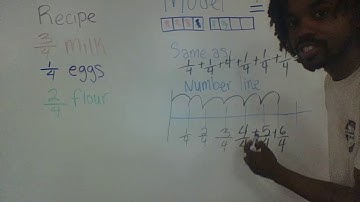 Recipe
3/4 milk
1/4 eggs
2/4 flour
Model =
Same as
1/4 + 1/4 + 1/4 + 1/4 + 1/4 + 1/4
Number line
1/4 2/4 3/4 4/4 + 5/4 + 6/4